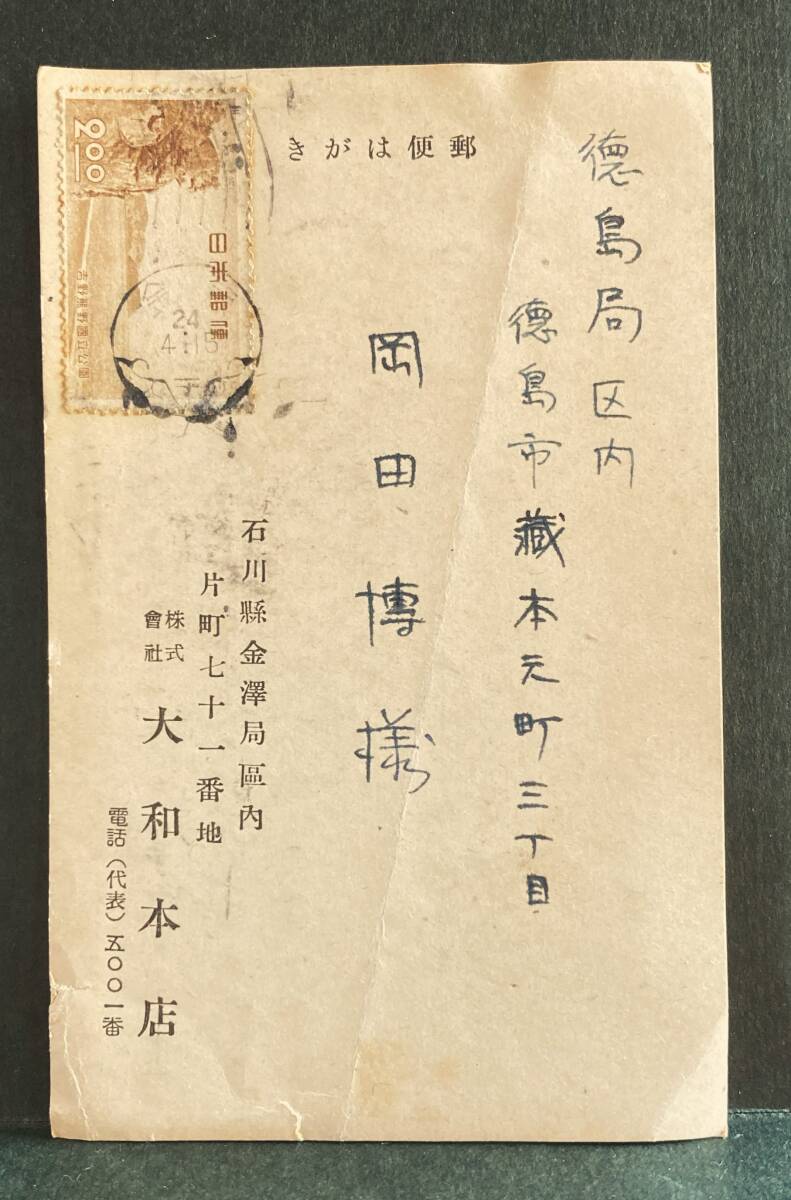 郵便はがき
徳島局区内
徳島市藏本元町三丁目
岡田博様
石川縣金澤局區內
片町七十一番地
株式會社 大和本店
電話（代表）五〇〇一番
2.00
日本郵便
吉野熊野國立公園
24
4.15